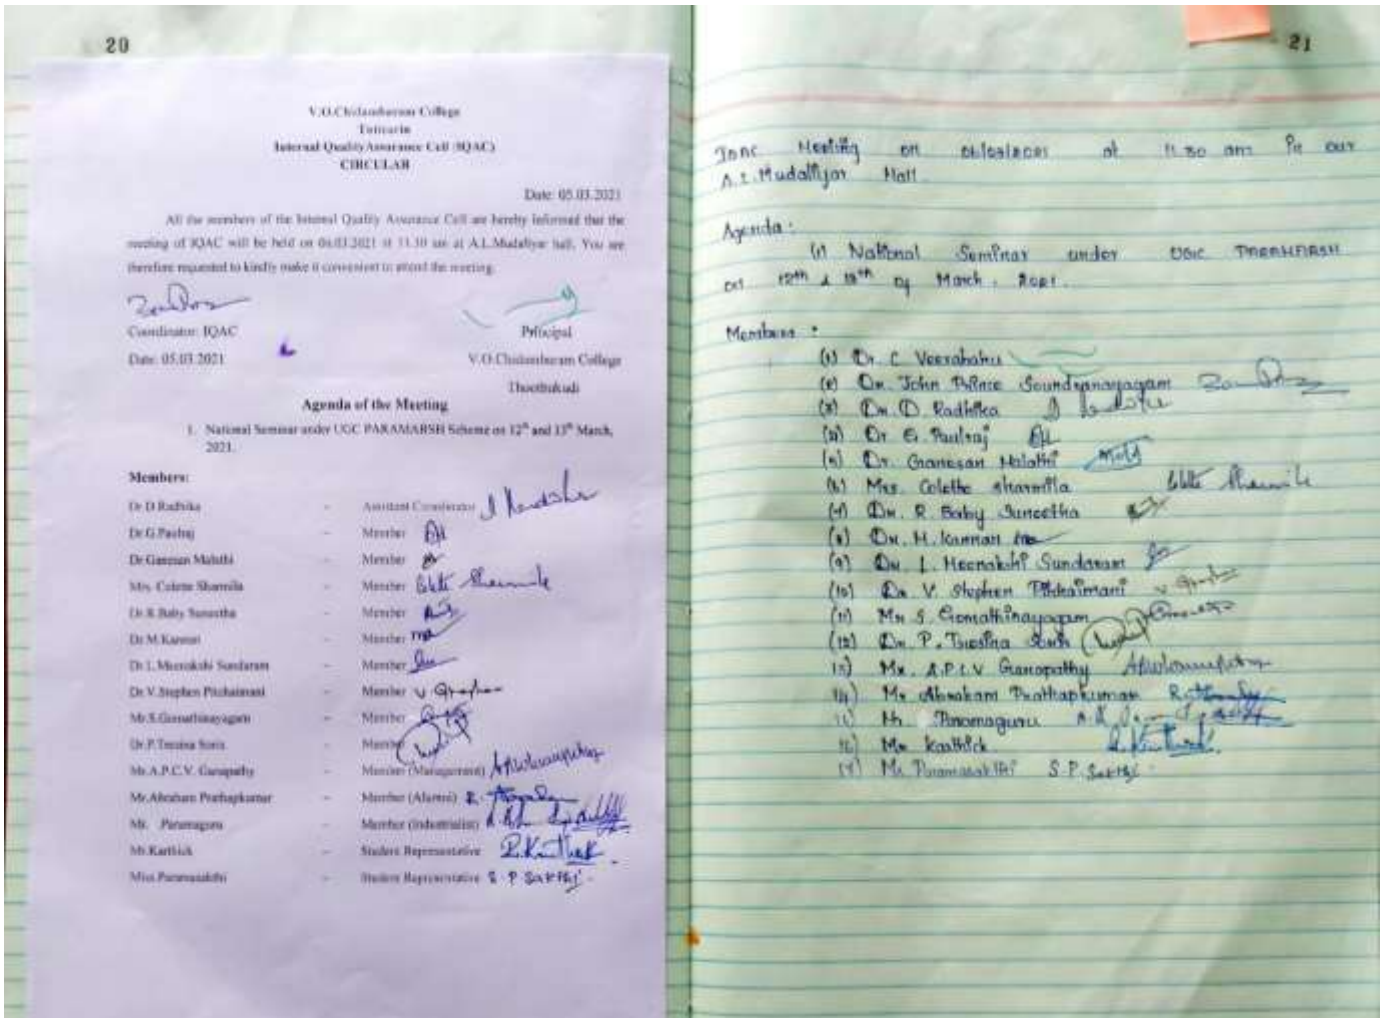 20
V.O.Chidambaram College
Tuticorin
Internal Quality Assurance Cell (IQAC)
CIRCULAR
Date: 05.03.2021
All the members of the Internal Quality Assurance Cell are hereby informed that the
meeting of IQAC will be held on 06.03.2021 at 11.30 am at A.L.Mudaliyar hall. You are
therefore requested to kindly make it convenient to attend the meeting.
Coordinator: IQAC
Principal
Date: 05.03.2021
V.O.Chidambaram College
Thoothukudi
Agenda of the Meeting
1. National Seminar under UGC PARAMARSH Scheme on 12th and 13th March,
2021.
Members:
Dr.D.Radhika - Assistant Coordinator
Dr.G.Paulraj - Member
Dr.Ganesan Malathi - Member
Mrs. Colette Sharmila - Member
Dr.R.Baby Suneetha - Member
Dr.M.Kannan - Member
Dr.L.Meenakshi Sundaram - Member
Dr.V.Stephen Pitchaimani - Member V. Stephen
Mr.S.Gomathinayagam - Member
Dr.P.Tresina Soris - Member
Mr.A.P.C.V. Ganapathy - Member (Management)
Mr.Abraham Prathapkumar - Member (Alumni)
Mr. Paramaguru - Member (Industrialist)
Mr.Karthick - Student Representative
Miss.Paramasakthi - Student Representative S.P. Sakthi
21
IQAC Meeting on 06/03/2021 at 11.30 am in our
A.L. Mudalliyar Hall.
Agenda:
(1) National Seminar under UGC PARAMARSH
on 12th & 13th of March, 2021.
Members:
(1) Dr. C Veerabahu
(2) Dr. John Prince Soundranayagam
(3) Dr. D. Radhika
(4) Dr G. Paulraj
(5) Dr. Ganesan Malathi
(6) Mrs. Colette sharmila
(7) Dr. R Baby Suneetha
(8) Dr. M. Kannan
(9) Dr. L. Meenakshi Sundaram
(10) Dr. V. Stephen Pitchaimani
(11) Mr S. Gomathinayagam
(12) Dr. P. Tresina
13) Mr. A.P.C.V Ganapathy
14) Mr Abraham Prathapkumar
15) Mr. Paramaguru
16) Mr Karthick
17) Ms. Paramasakthi S.P. Sakthi